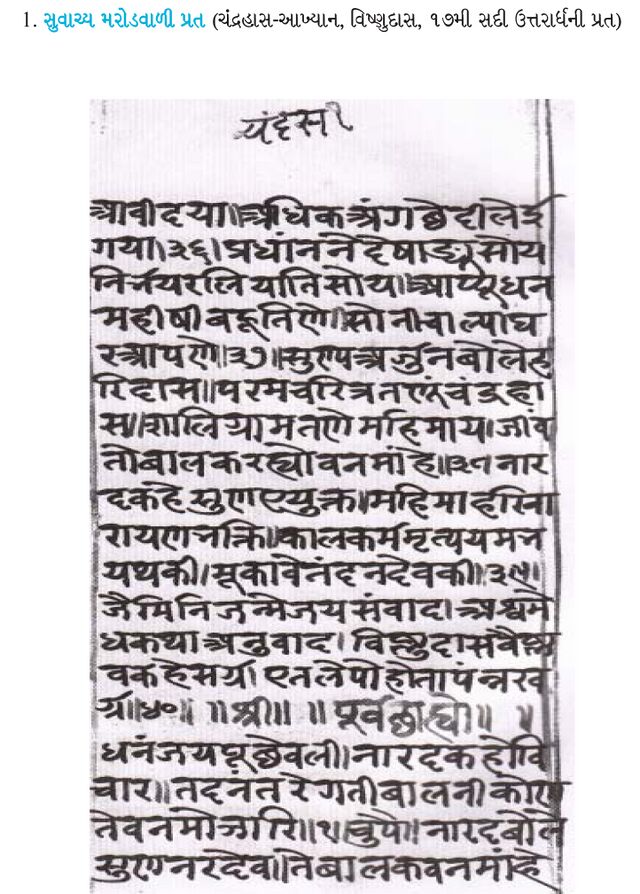 1. સુવાચ્ય મરોડવાળી પ્રત (ચંદ્રહાસ-આખ્યાન, વિષ્ણુદાસ, ૧૭મી સદી ઉત્તરાર્ધની પ્રત)
आवीदया॥अधिकअंगछेदीलेई
गया।३६।प्रधांनने
निर्नयरलियातिसोय॥
महीषी
स्त्रापणे॥३७॥सुण्यअर्जुनबोलेह
रिदास॥परमचरित्रतणूंचंद्रहा
स॥शालिग्रामतणेमहिमाय।जीव
तोबालकरह्योवनमांहे॥३८नार
दकहेसुणएयुक्त॥महिमाहरिना
रायणभक्ति॥कालकर्ममृत्ययमभ
यथकी।मूकावेनंदनदेवकी।३९॥
जैमिनिजन्मेजयसंवाद।अश्वमे
धकथाअनुवाद।विष्णुदासवैष्ण
वकहेसर्य।एतलेपोहोतापंन्नरव
र्ग्र॥४०॥ ॥श्री॥ ॥पूर्वछाह्यो॥ ॥
धनंजयपूछेवली।नारदकहोवि
चार॥तदनंतरेगतीबालनीकोण
तेवनमोझारि॥१॥चुपै॥नारदबोले
सुणनरदेव॥तेबालकवनमांहे